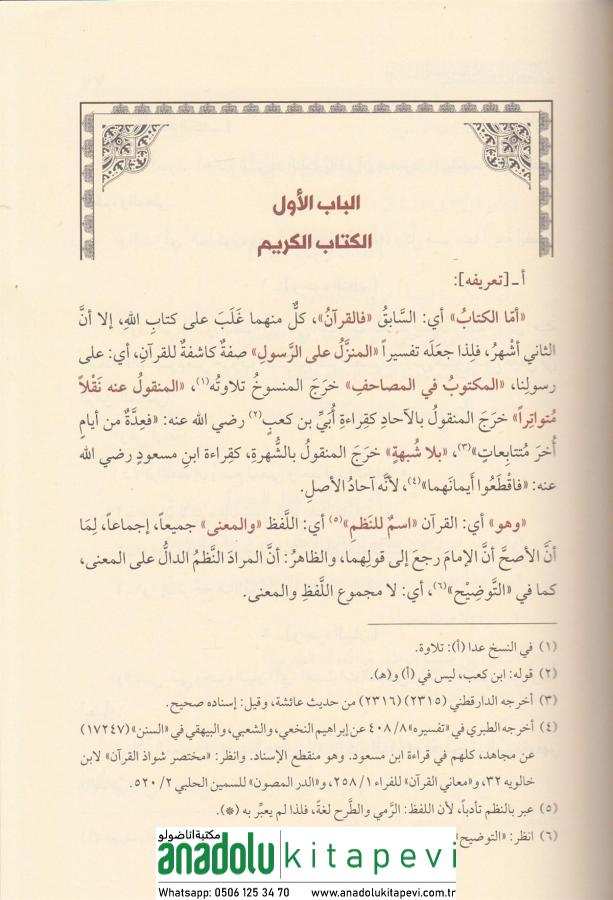 الباب الأول
الكتاب الكريم
أ ـ [تعريفه]:
«أمّا الكتابُ» أي: السَّابقُ «فالقرآنُ»، كلٌّ منهما غَلَبَ على كتابِ اللهِ، إلا أنَّ
الثاني أشْهرُ، فلِذا جعَلَه تفسيراً «المنزَّلُ على الرَّسولِ» صفةٌ كاشفةٌ للقرآنِ، أي: على
رسولِنا، «المكتوبُ في المصاحفِ» خرَجَ المنسوخُ تلاوتُه(١)، «المنقولُ عنه نَقْلاً
مُتواتِراً» خرَجَ المنقول بالآحادِ كقِراءةِ أُبَيِّ بن كعبٍ(٢) رضي الله عنه: «فعِدَّةٌ من أيامٍ
أُخرَ مُتتابِعاتٍ»(٣)، «بلا شُبهةٍ» خرَجَ المنقول بالشُّهرةِ، كقِراءة ابنِ مسعودٍ رضي الله
عنه: «فاقْطَعُوا أيمانَهما»(٤)، لأنَّه آحادُ الأصلِ.
«وهو» أي: القرآن «اسمٌ للنَّظمِ»(٥) أي: اللَّفظ «والمعنى» جميعاً، إجماعاً، لِمَا
أنَّ الأصحَّ أنَّ الإمامَ رجعَ إلى قولِهما، والظاهر: أنَّ المرادَ النَّظمُ الدالُّ على المعنى،
كما في «التَّوضِيْح»(٦)، أي: لا مجموع اللَّفظِ والمعنى.
(١) في النسخ عدا (أ): تلاوة.
(٢) قوله: ابن كعب، ليس في (أ) و(هـ).
(٣) أخرجه الدارقطني (٢٣١٥) (٢٣١٦) من حديث عائشة، وقيل: إسناده صحيح.
(٤) أخرجه الطبري في «تفسيره» ٤٠٨/٨ عن إبراهيم النخعي، والشعبي، والبيهقي في «السنن» (١٧٢٤٧)
عن مجاهد، كلهم في قراءة ابن مسعود. وهو منقطع الإسناد. وانظر: «مختصر شواذ القرآن» لابن
خالويه ٣٢، و«معاني القرآن» للفراء ٢٥٨/١، و«الدر المصون» للسمين الحلبي ٥٢٠/٢.
(٥) عبر بالنظم تأدباً، لأن اللفظ: الرَّمي والطَّرح لغةً، فلذا لم يعبِّر به (*).
(٦) انظر: «التوضيح»
مكتبة اناضولو
anadolu kitapevi
Whatsapp: 0506 125 34 70 www.anadolukitapevi.com.tr